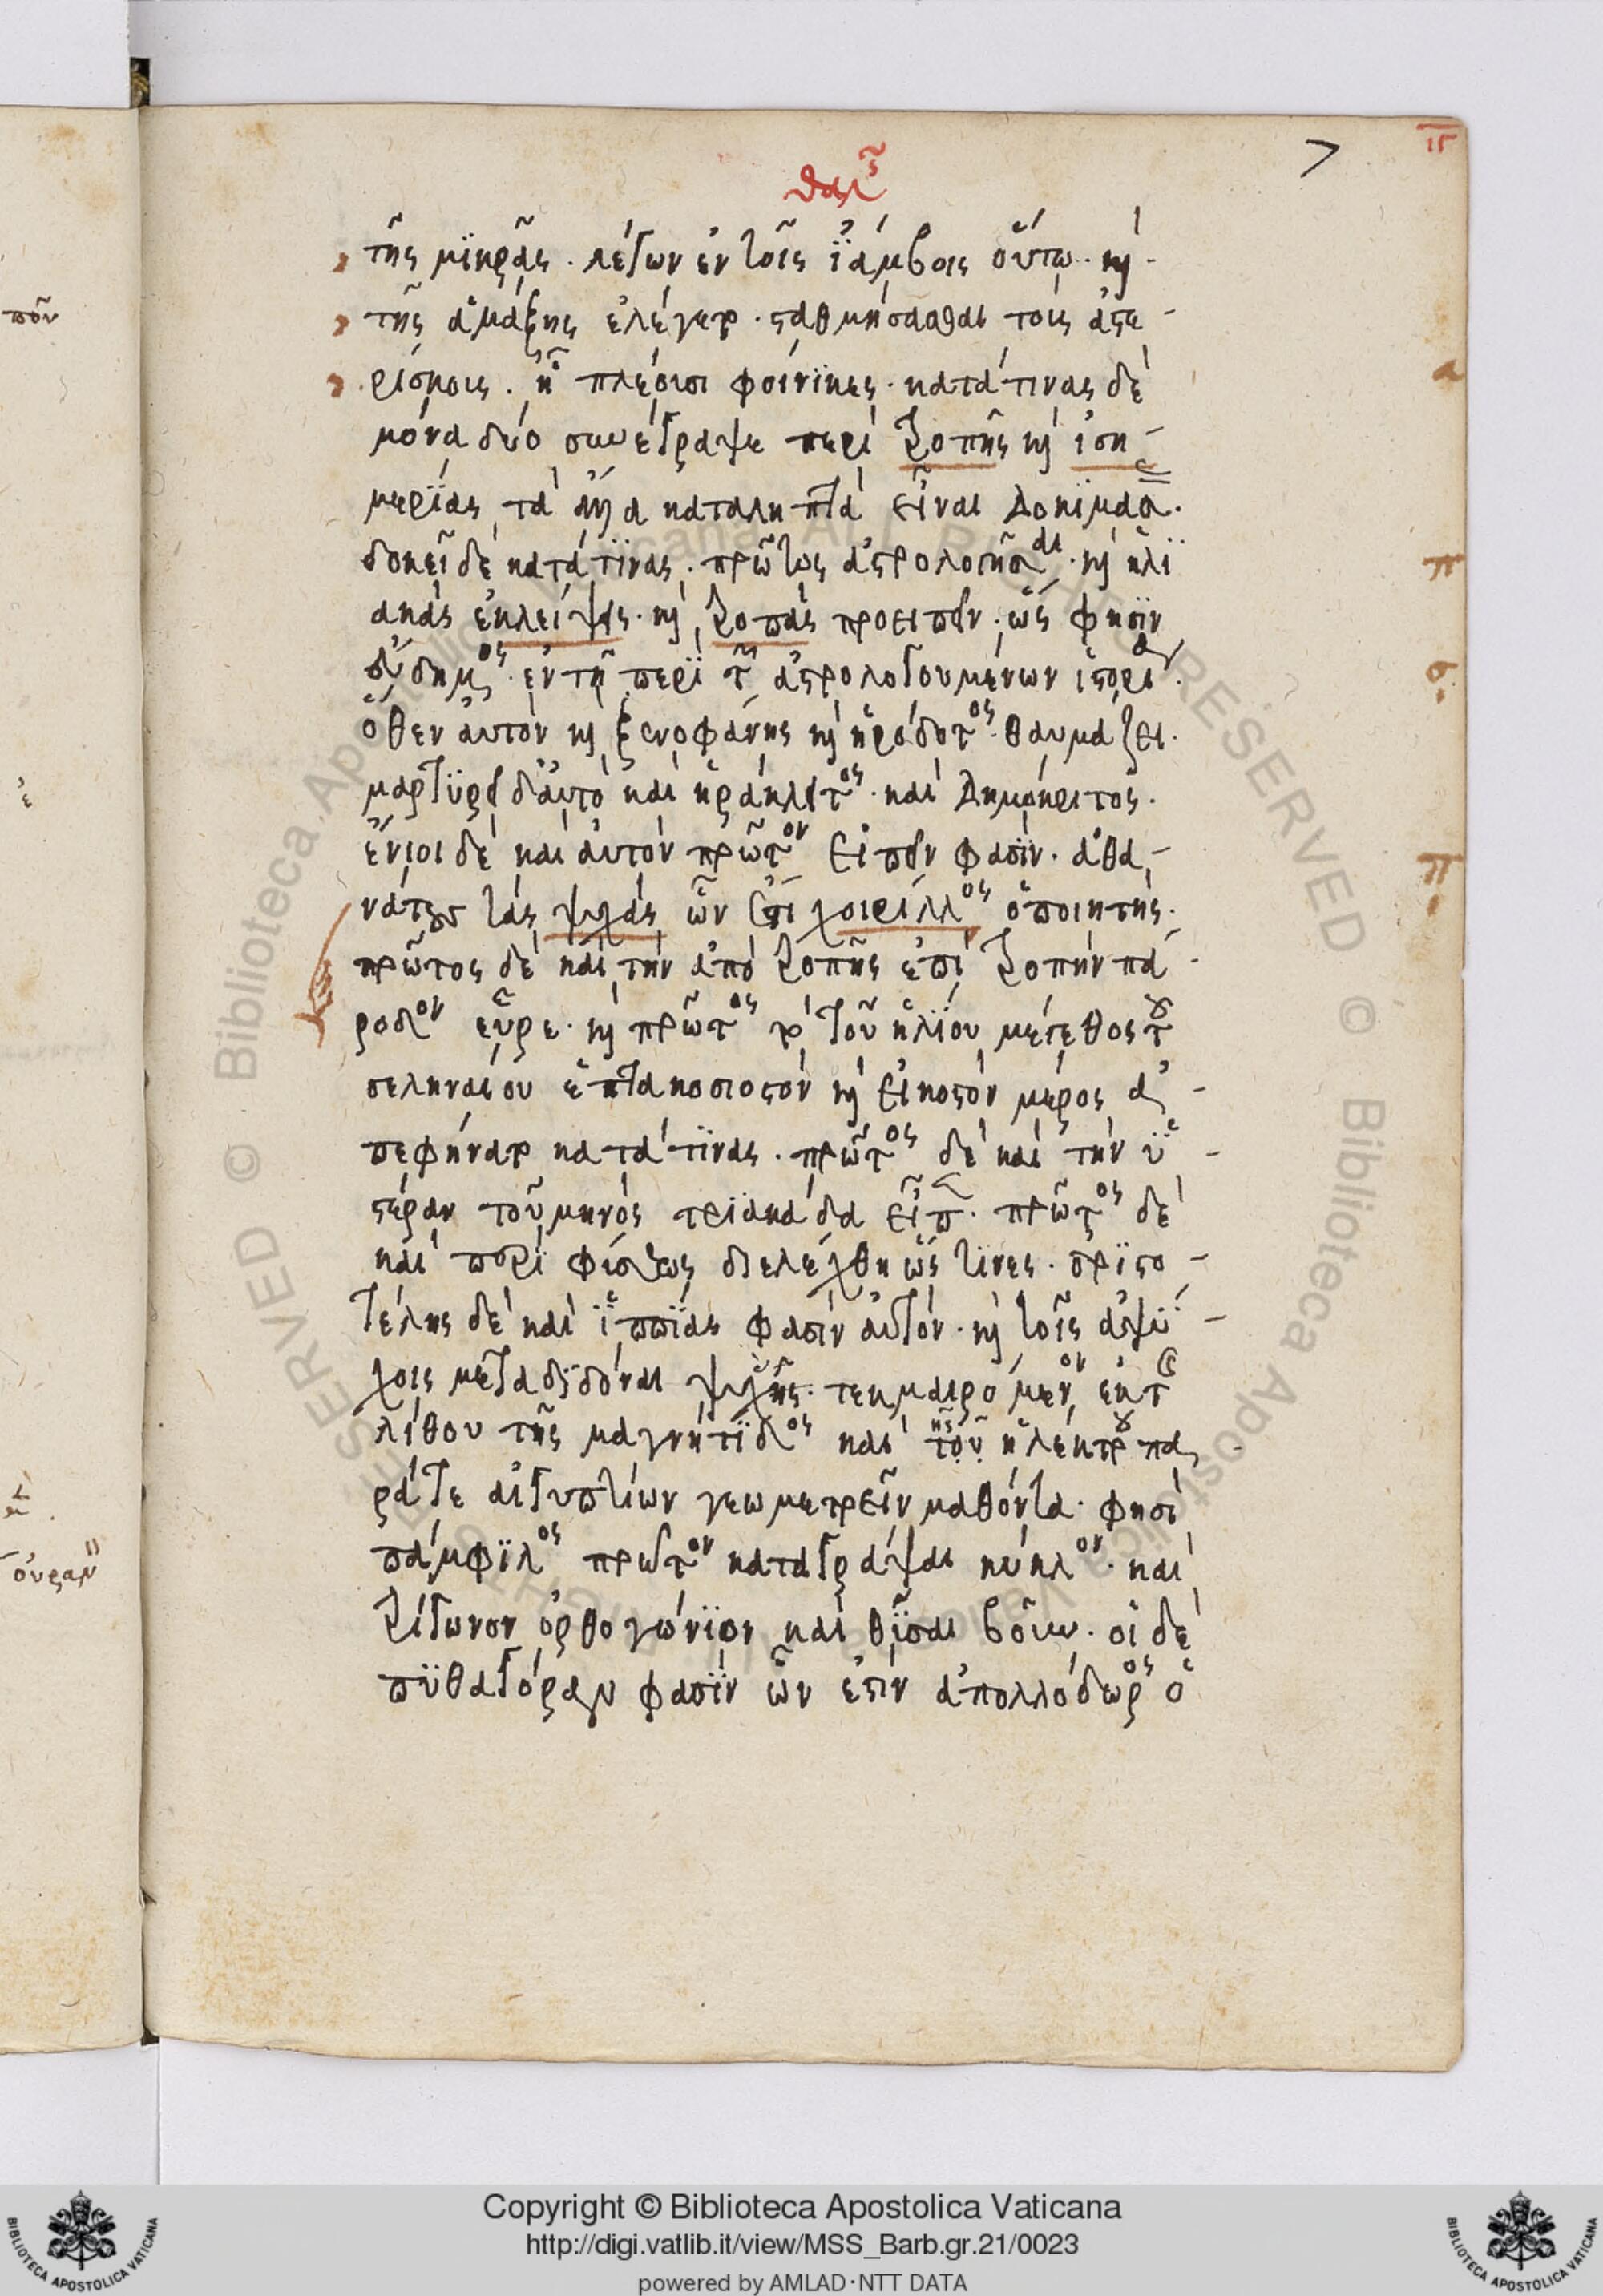 θαλῆς
τῆς μϊκρᾶς. λέγων ἐν τοῖς ϊάμβοις οὕτω. καὶ
τῆς ἁμάξης ἐλέγετο. σταθμήσασθαι τοὺς ἀστε-
ρίσκους. ἧ πλέουσι φοίνϊκες. κατά τινας δὲ
μόνα δύο συνέγραψε περὶ τροπῆς καὶ ἰση-
μερϊας, τὰ ἄλλα καταληπτὰ εἶναι δοκϊμάσας.
δοκεῖ δὲ κατά τϊνας. πρῶτος ἀστρολογῆσαι. καὶ ἡλϊ
ακὰς ἐκλείψεις. καὶ τροπὰς προειπεῖν. ὥς φησϊν
εὔδημος. ἐν τῇ περϊ τῶν ἀστρολογουμένων ἱστορίαν.
ὅθεν αὐτὸν καὶ ξενοφάνης καὶ ἡρόδοτος. θαυμάζει.
μαρτϋρεῖ δ' αὐτὸ καὶ ἡράκλειτος. καὶ δημόκριτος.
ἔνιοι δὲ καὶ αὐτὸν πρῶτον εἰπεῖν φασϊν. ἀθα-
νάτους τὰς ψυχάς ὧν ἐστὶ χοιρίλλος ὁ ποιητής.
πρῶτος δὲ καὶ τὴν ἀπὸ τροπῆς ἐπὶ τροπὴν πά-
ροδον εὗρε. καὶ πρῶτος τὸ τοῦ ἡλϊου μέγεθος τοῦ
σεληναίου ἑπτακοσιοστὸν καὶ εἰκοστὸν μέρος ἀ-
πεφήνατο κατά τϊνας. πρῶτος δὲ καὶ τὴν ὑ-
στέραν τοῦ μηνὸς τρϊακάδα εἶπε. πρῶτος δὲ
καὶ περϊ φύσεως διελέχθη ὥς τϊνες. ἀρϊστο-
τέλης δὲ καὶ ἱππϊας φασὶν αὐτὸν. καὶ τοῖς ἀψύ-
χοις μεταδϊδόναι ψυχῆς. τεκμαιρόμενον ἐκ τῆς
λίθου τῆς μαγνήτϊδος καὶ τοῦ ἠλέκτρου πα-
ρά τε αἰγυπτίων γεωμετρεῖν μαθόντα. φησὶ
πάμφϊλος πρῶτον καταγράψαι κύκλον. καὶ
τρίγωνον ὀρθογώνϊον καὶ θῦσαι βοῦν. οἱ δὲ
πϋθαγόραν φασϊν ὧν ἐστὶν ἀπολλόδωρος ὁ
Copyright © Biblioteca Apostolica Vaticana
http://digi.vatlib.it/view/MSS_Barb.gr.21/0023
powered by AMLAD·NTT DATA